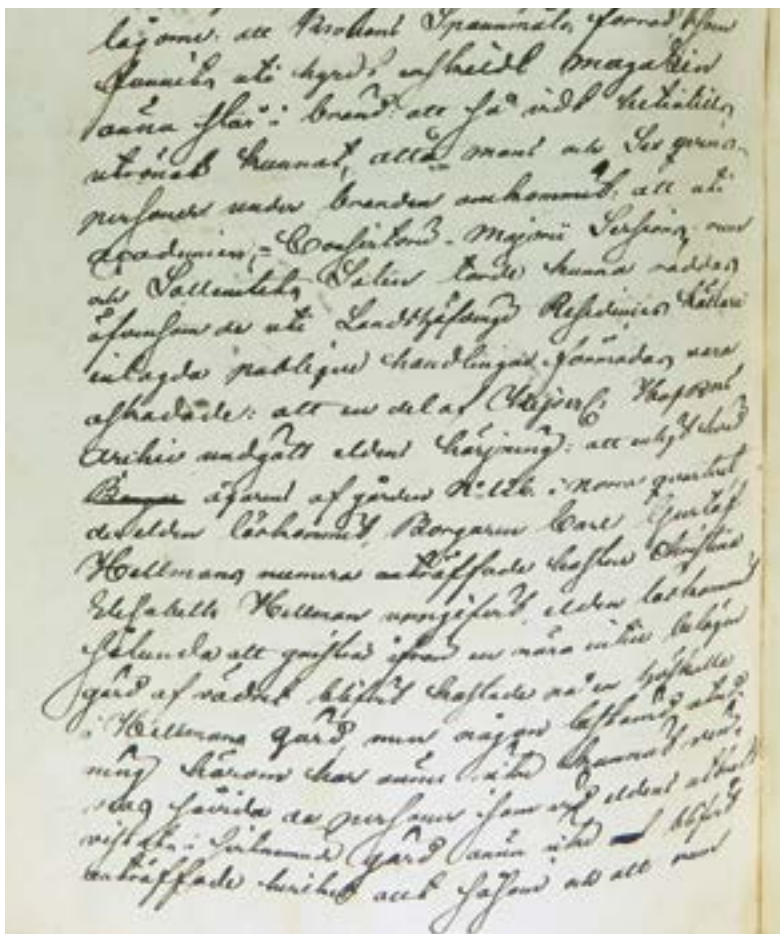 lägorne: att Kronans Spannmåls förråd, som
funnits uti hyrdt enskildt magazin
ännu står i brand: att så vidt hitintills
utrönas kunnat, åtta mans och Sex qvins-
personer under branden omkommit: att uti
academiens Consistorii Majoris Sessions rum
och Solleniteits Salen torde kunna räddas
äfvensom de uti Landshöfdinge Residencets källare
inlagda publique handlingar förmodas vara
oskadade: att en del af Kejserl: Hofrättens
Archiv undgått eldens härjning: att enligt hvad
ägaren af gården N:o 126 i norra qvarteret
der elden löskommit, Borgaren Carl Gustaf
Hellmans numera anträffade hustru Christina
Elisabeth Hellman uppgifvit, elden löskommit
sålunda att gnistor ifrån en nära intill belägen
gård af vädret blifvit kastade på en
i Hellmans gård, men någon
ning härom har ännu icke kunnat
mas hvarjemte de personer som vid eldens utbrott
vistats i förenämnde gård ännu icke blifvit
anträffade